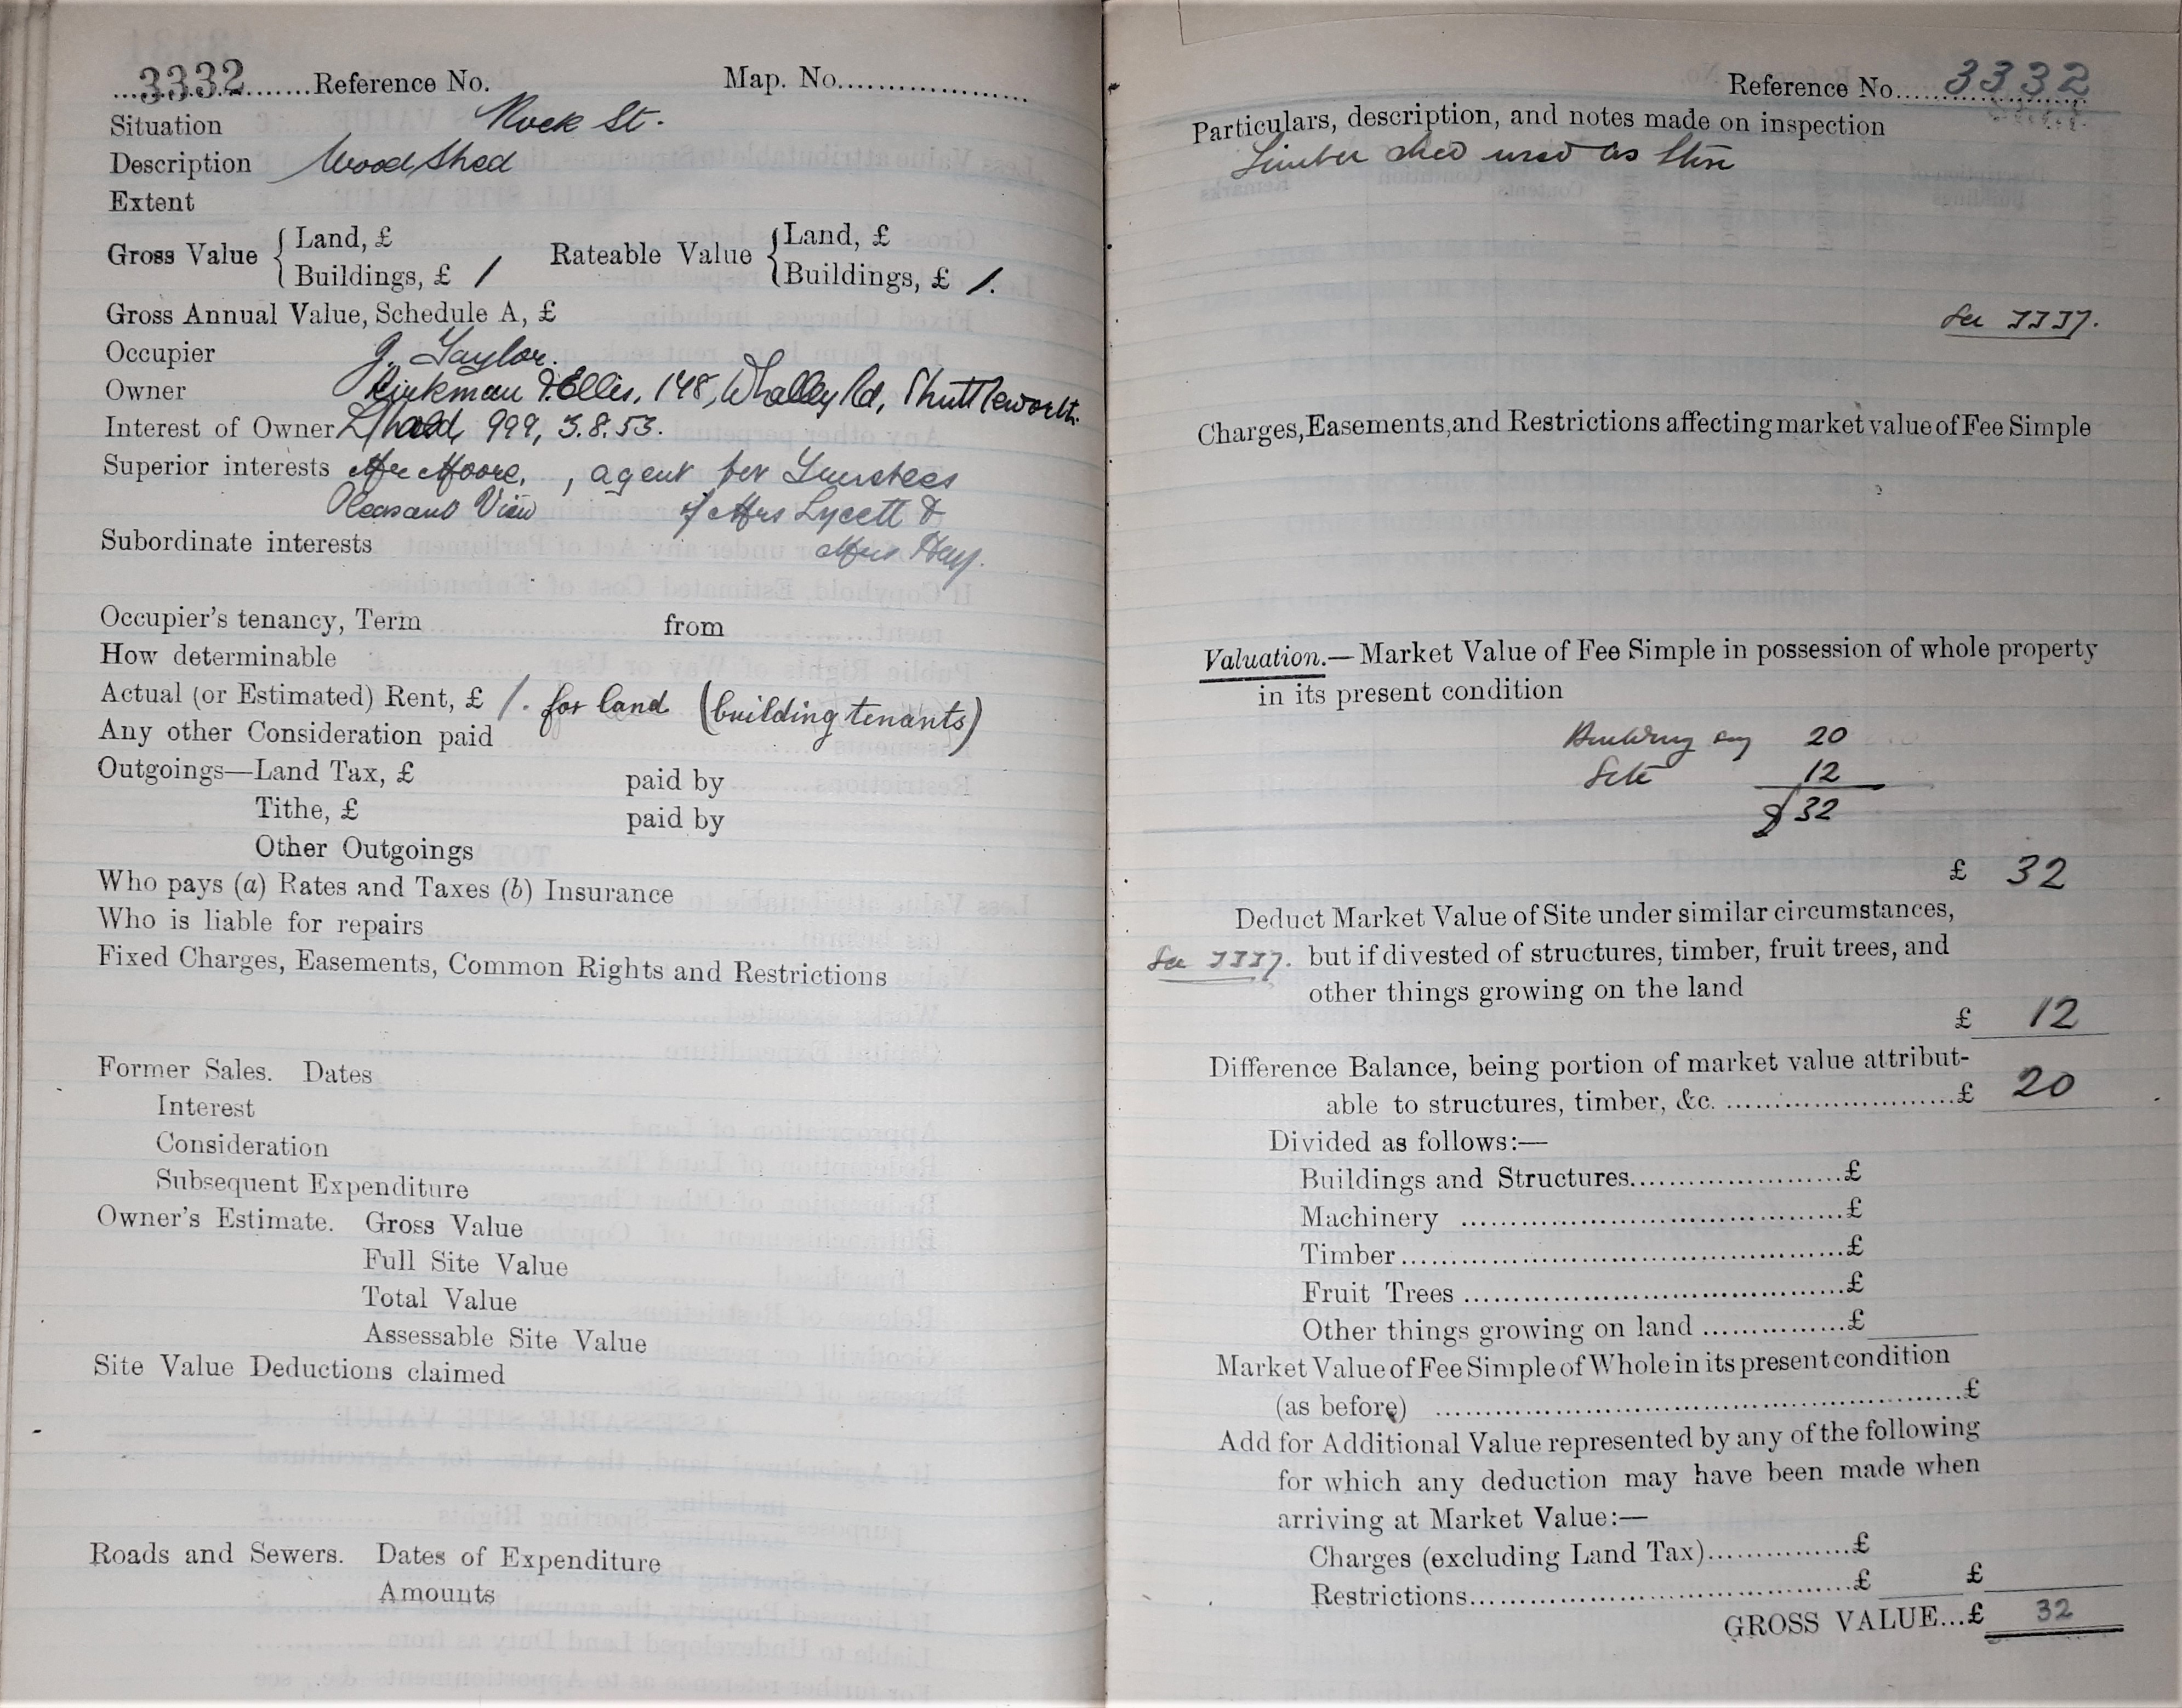 3332 Reference No. Map. No.
Situation Rock St.
Description Wood Shed
Extent
Gross Value { Land, £ Rateable Value { Land, £
Buildings, £ 1 Buildings, £ 1.
Gross Annual Value, Schedule A, £
Occupier J. Taylor.
Owner Kirkman & Ellis, 148, Whalley Rd, Shuttleworth.
Interest of Owner L/hold, 999, 3.8.53.
Superior interests Mr Moore, , agent for Trustees
Pleasant View of Mrs Lycett &
Subordinate interests Mrs Hay.
Occupier's tenancy, Term from
How determinable
Actual (or Estimated) Rent, £ 1. for land (building tenants)
Any other Consideration paid
Outgoings—Land Tax, £ paid by
Tithe, £ paid by
Other Outgoings
Who pays (a) Rates and Taxes (b) Insurance
Who is liable for repairs
Fixed Charges, Easements, Common Rights and Restrictions
Former Sales. Dates
Interest
Consideration
Subsequent Expenditure
Owner's Estimate. Gross Value
Full Site Value
Total Value
Assessable Site Value
Site Value Deductions claimed
Roads and Sewers. Dates of Expenditure
Amounts
Reference No. 3332
Particulars, description, and notes made on inspection
Timber shed used as Store
See 3337.
Charges, Easements, and Restrictions affecting market value of Fee Simple
Valuation.—Market Value of Fee Simple in possession of whole property
in its present condition
Building say 20
Site 12
£ 32
£ 32
Deduct Market Value of Site under similar circumstances,
See 3337. but if divested of structures, timber, fruit trees, and
other things growing on the land
£ 12
Difference Balance, being portion of market value attribut-
able to structures, timber, &c. £ 20
Divided as follows:—
Buildings and Structures £
Machinery £
Timber £
Fruit Trees £
Other things growing on land £
Market Value of Fee Simple of Whole in its present condition
(as before) £
Add for Additional Value represented by any of the following
for which any deduction may have been made when
arriving at Market Value:—
Charges (excluding Land Tax) £
Restrictions £ £
GROSS VALUE...£ 32